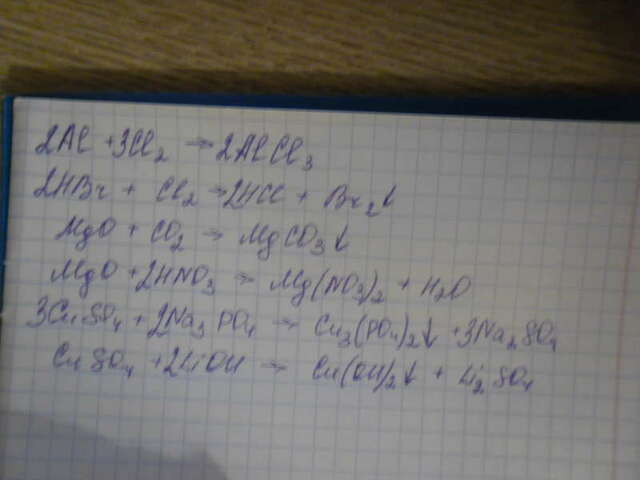 2Al + 3Cl₂ → 2AlCl₃
2HBr + Cl₂ → 2HCl + Br₂↓
MgO + CO₂ → MgCO₃↓
MgO + 2HNO₃ → Mg(NO₃)₂ + H₂O
3CuSO₄ + 2Na₃PO₄ → Cu₃(PO₄)₂↓ + 3Na₂SO₄
CuSO₄ + 2LiOH → Cu(OH)₂↓ + Li₂SO₄